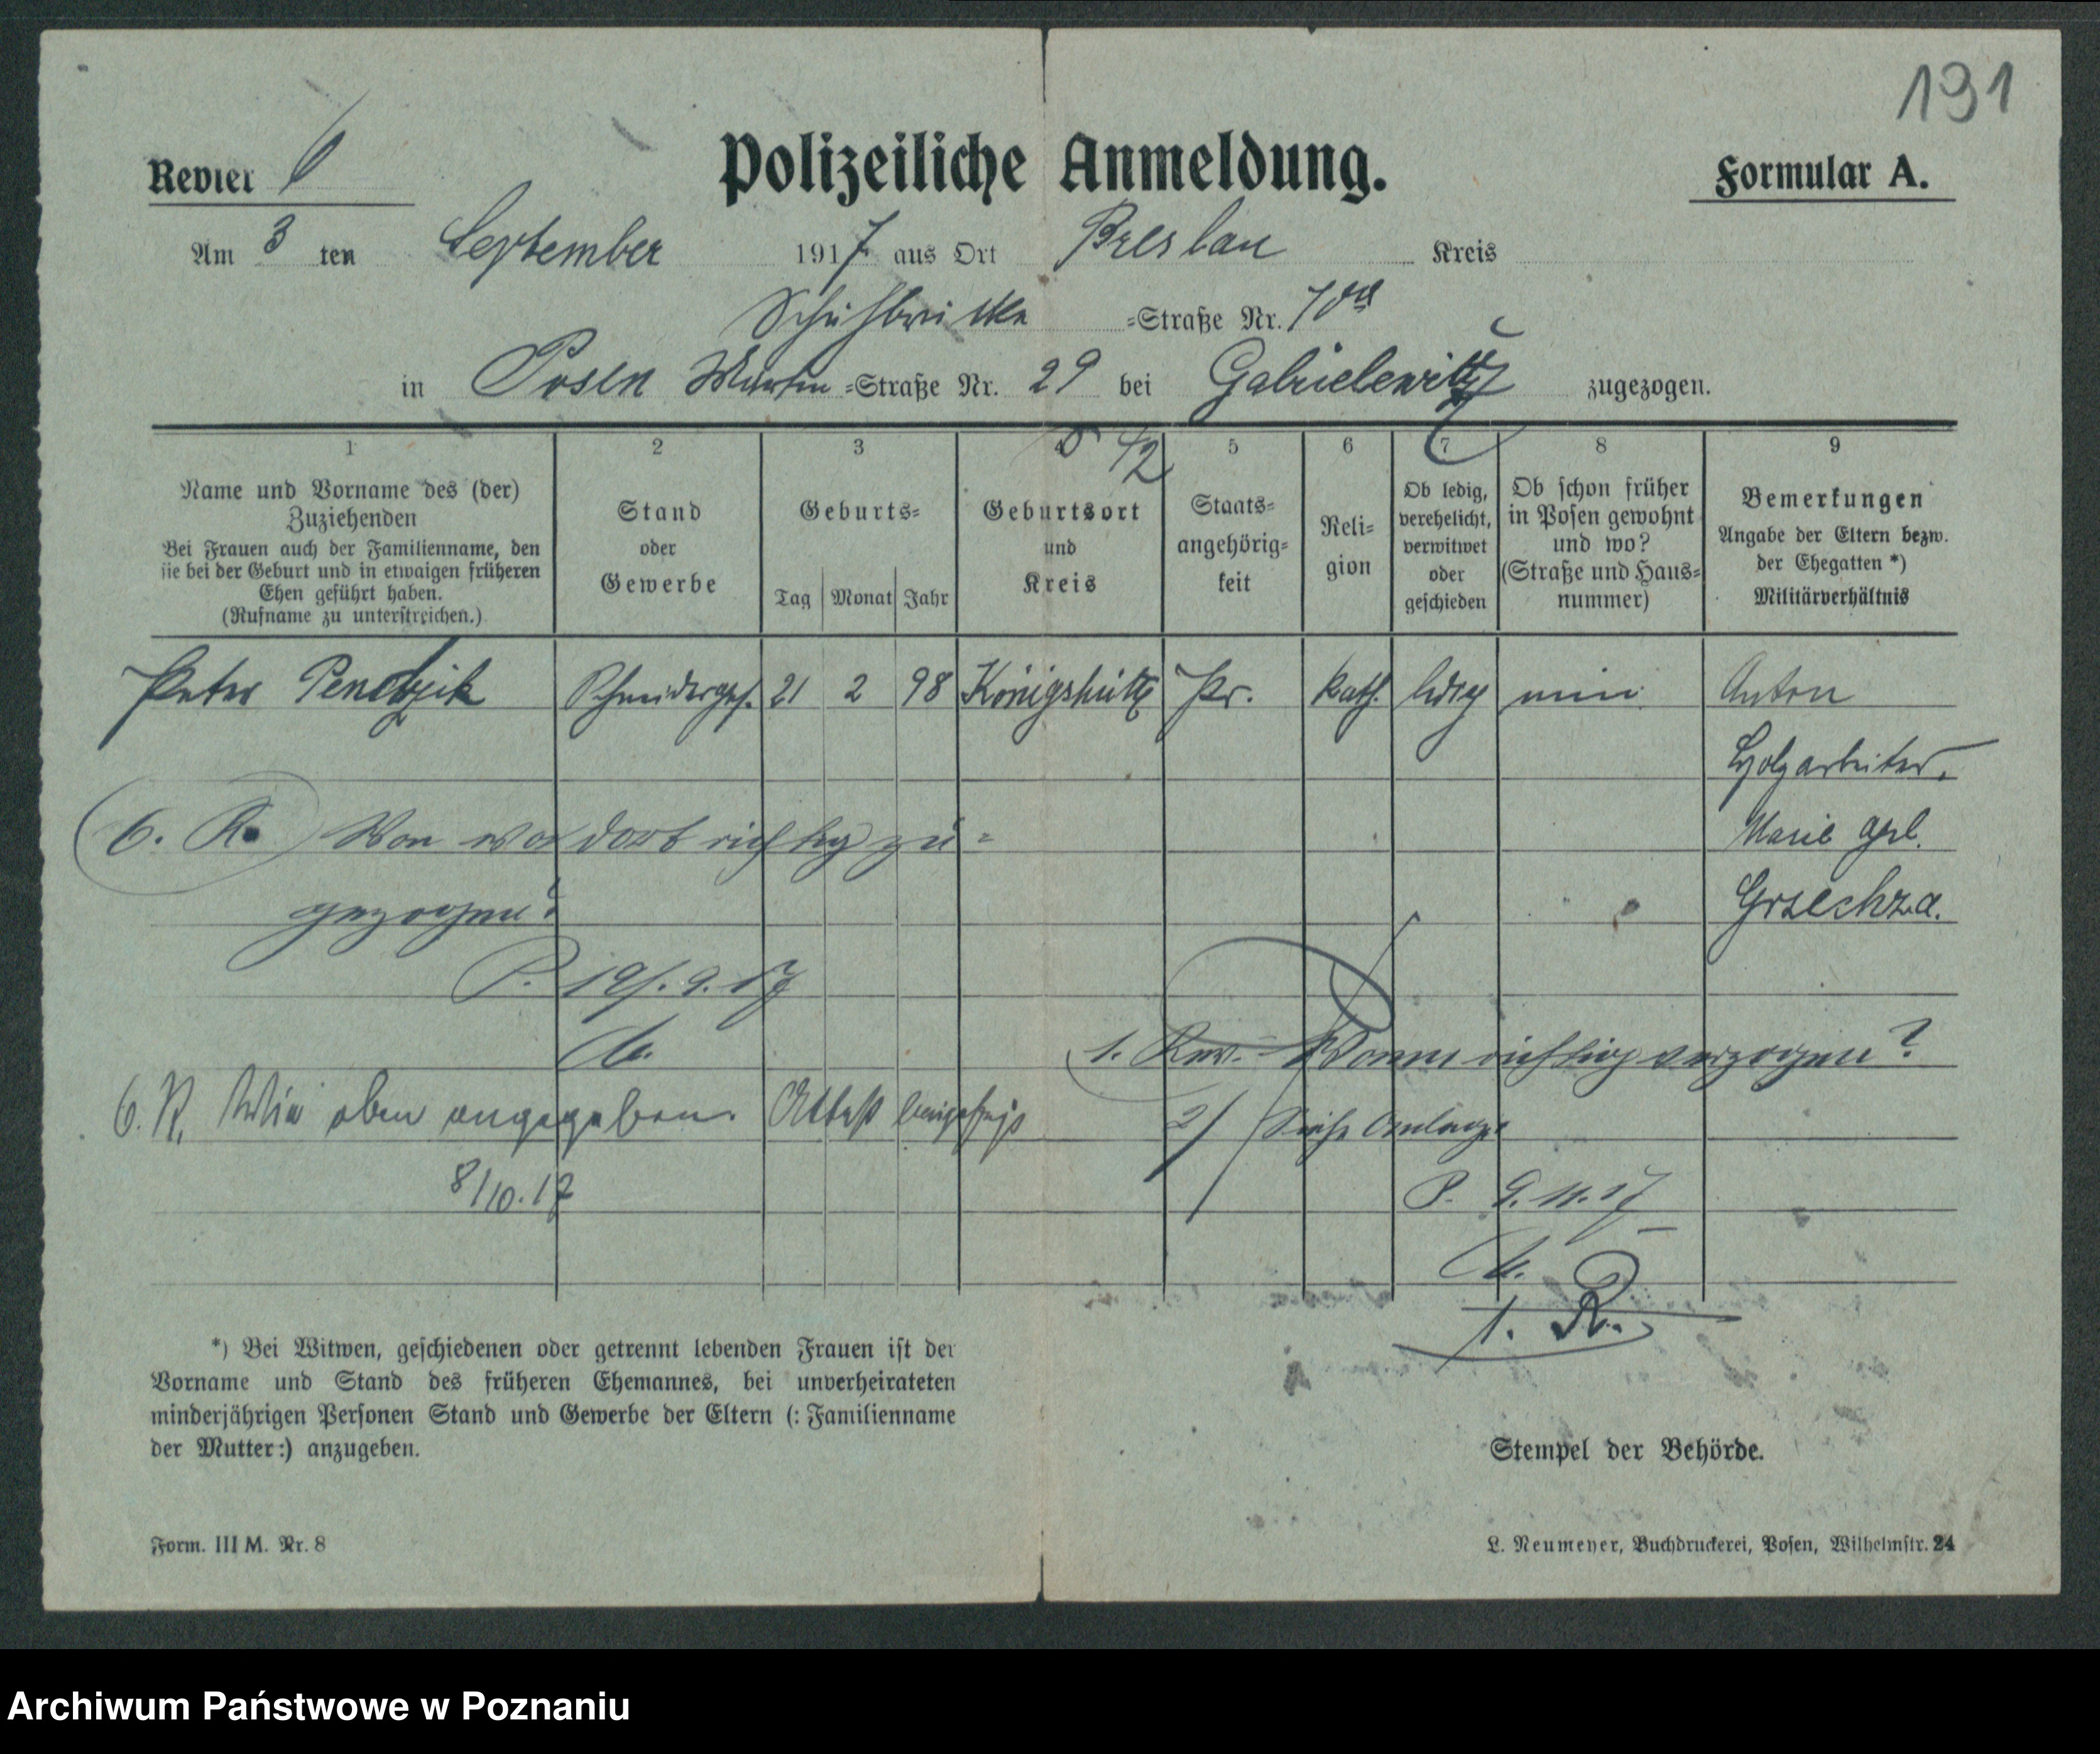 191
Revier 6
Polizeiliche Anmeldung.
Formular A.
Am 3 ten September 1917 aus Ort Breslau Kreis
Schuhbrücke =Straße Nr. 70
in Posen Martin =Straße Nr. 29 bei zugezogen.
1 2 3 4 5 6 7 8 9
Name und Vorname des (der)
Zuziehenden
Bei Frauen auch der Familienname, den
sie bei der Geburt und in etwaigen früheren
Ehen geführt haben.
(Rufname zu unterstreichen.)
Stand
oder
Gewerbe
Geburts=
Tag Monat Jahr
Geburtsort
und
Kreis
Staats=
angehörig=
keit
Reli=
gion
Ob ledig,
verehelicht,
verwitwet
oder
geschieden
Ob schon früher
in Posen gewohnt
und wo?
(Straße und Haus=
nummer)
Bemerkungen
Angabe der Eltern bezw.
der Ehegatten *)
Militärverhältnis
Peter Pendzik Schneiderges. 21 2 98 Königshütte Pr. kath. ledig nein Anton
Holzarbeiter.
Marie geb.
Grzechza.
6. R. Von wo dort richtig zu=
gezogen?
P. 19/.9.17
1. Rev. Wann richtig verzogen?
6. R. Wie oben angegeben. Attest beigefügt
2/ Siehe Anlage
8/10.17
P. 9.11.17
1. R.
*) Bei Witwen, geschiedenen oder getrennt lebenden Frauen ist der
Vorname und Stand des früheren Ehemannes, bei unverheirateten
minderjährigen Personen Stand und Gewerbe der Eltern (: Familienname
der Mutter:) anzugeben.
Stempel der Behörde.
Form. III M. Nr. 8
L. Neumeyer, Buchdruckerei, Posen, Wilhelmstr. 24
Archiwum Państwowe w Poznaniu